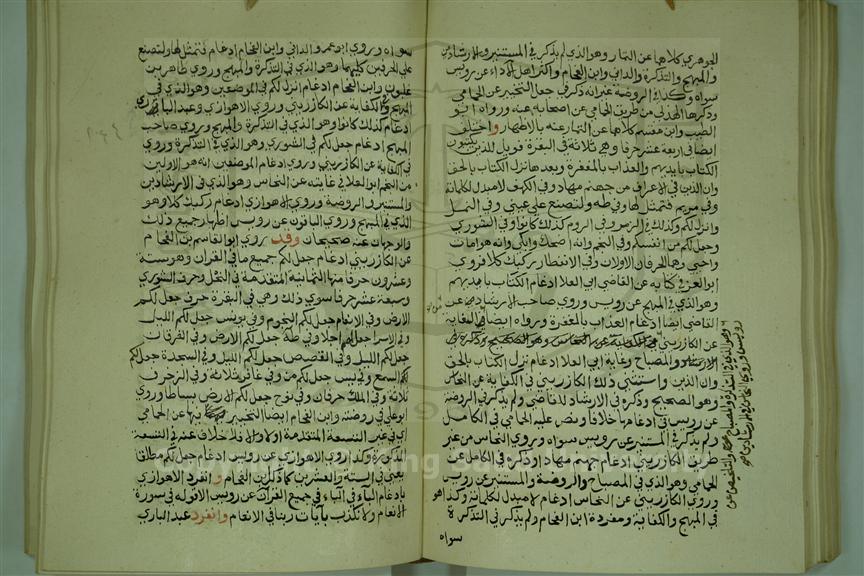 الجوهري كلاهما عن التمار وهو الذي لم يذكر في المستنير والارشادين
والمبهج والتذكرة والداني وابن الفحام واكثر اهل الاداء عن رويس
سواه وكذا في الروضة غير انه ذكر في جعل التخيير عن الحمامي
وذكرها الهذلي من طريق الحمامي عن اصحابه عنه ورواه ابو
الطيب وابن مقسم كلاهما عن التمار عنه بالاظهار واختلف
ايضا في اربعة عشر حرفا وهي ثلاثة في البقرة فويل للذين يكتبون
الكتاب بايديهم والعذاب بالمغفرة وبعدها نزل الكتاب بالحق
وان الذين وفي الاعراف من جهنم مهاد وفي الكهف لا مبدل لكلماته
وفي مريم فتمثل لها وفي طه ولتصنع على عيني وفي النمل
وانزل لكم وكذلك في الزمر وفي الروم كذلك كانوا وفي الشورى
وجعل لكم من انفسكم وفي النجم وانه اضحك وابكى وانه هو امات
واحيى وهما الحرفان الاولان وفي الانفطار ركبك كلا فروى
ابو العز في كتابه عن القاضي ابي العلا ادغام الكتاب بايديهم
وهو الذي في المبهج عن رويس وروى صاحب الارشاد عن
القاضي ايضا ادغام العذاب بالمغفرة ورواه ايضا في الكفاية
عن الكارزيني وهو الصحيح وذكره في
الارشاد والمصباح وغاية ابي العلا ادغام نزل الكتاب بالحق
وان الذين واستثنى ذلك الكارزيني في الكفاية عن النخاس
وهو الصحيح وذكره في الارشاد للقاضي ولم يذكر في الروضة
عن رويس في ادغامها خلافا ونص عليه الحمامي في الكامل
ولم يذكر في المستنير عن رويس سواه وروى النخاس من غير
طريق الكارزيني ادغام جهنم مهاد وذكره في الكامل عن
الحمامي وهو الذي في المصباح والروضة والمستنير عن رويس
وروى الكارزيني عن النخاس ادغام لا مبدل لكلماته وكذا هو
في المبهج والكفاية ومفردة ابن الفحام ولم يذكر في التذكرة
سواه
سواه وروى ابو عمرو الداني وابن الفحام ادغام فتمثل لها ولتصنع
على الحرفين كليهما وهو الذي في التذكرة والمبهج وروى طاهر بن
غلبون وابن الفحام ادغام انزل لكم في الموضعين وهو الذي في
المبهج والكفاية عن الكارزيني وروى الاهوازي وعبد الباري
ادغام كذلك كانوا وهو الذي في التذكرة والمبهج وروى صاحب
المبهج ادغام جعل لكم في الشورى وهو الذي في التذكرة وروى
في الكفاية عن الكارزيني وروى ادغام الموضعين انه هو الاولين
من النجم ابو العلا في غايته عن النخاس وهو الذي في الارشادين
والمستنير والروضة وروى الاهوازي ادغام ركبك كلا وهو
الذي في المبهج وروى الباقون عن رويس اظهار جميع ذلك
والوجهان عنه صحيحان وقد روى ابو القاسم بن الفحام
عن الكارزيني ادغام جعل لكم جميع ما في القران وهو ستة
وعشرون حرفا منها الثمانية المتقدمة في النحل وحرف الشورى
وسبعة عشر حرفا سوى ذلك وهي في البقرة حرف جعل لكم
الارض وفي الانعام جعل لكم النجوم وفي يونس جعل لكم الليل
وفي الاسرا جعل لهم اجلا وفي طه جعل لكم الارض وفي الفرقان
جعل لكم الليل وفي القصص جعل لكم الليل وفي السجدة جعل لكم
السمع وفي يس جعل لكم من وفي غافر ثلاثة وفي الزخرف
ثلاثة وفي الملك حرفان وفي نوح جعل لكم الارض بساطا وروى
ابو علي في روضته وابن الفحام ايضا التخيير فيها عن الحمامي
اي في غير التسعة المتقدمة اولا والا فلا خلاف عنه في التسعة
المذكورة وكذا روى الاهوازي عن رويس ادغام جعل لكم مطلقا
يعني في الستة والعشرين كما ذكر ابن الفحام وانفرد الاهوازي
بادغام الباء في الباء في جميع القران عن رويس الا قوله في سورة
الانعام ولا نكذب بآيات ربنا في الانعام وانفرد عبد الباري